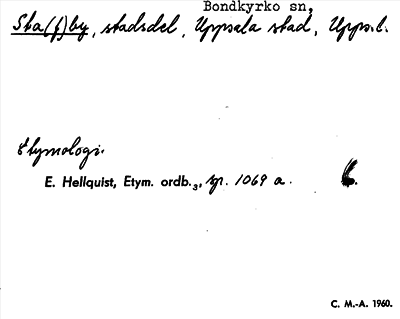 Bondkyrko sn,
Ska(f)by, stadsdel, Uppsala stad, Upps.l.
Etymologi.
E. Hellquist, Etym. ordb.₃, sp. 1069 a.
C. M.-A. 1960.